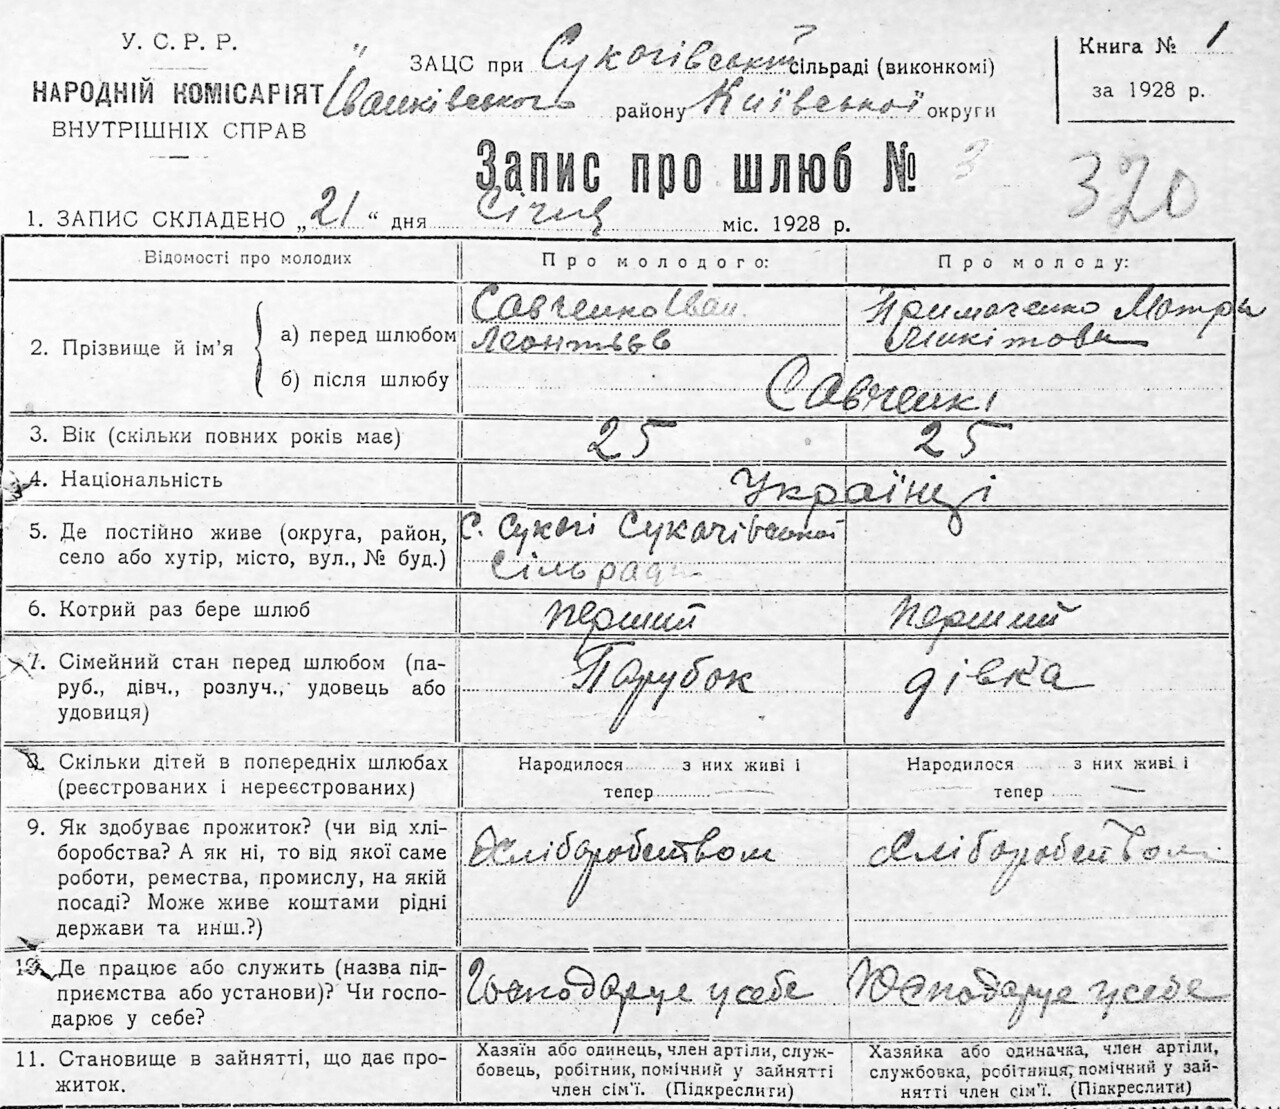 У. С. Р. Р.
НАРОДНІЙ КОМІСАРІЯТ
ВНУТРІШНІХ СПРАВ
ЗАЦС при Сукачівській сільраді (виконкомі)
Іванківського району Київської округи
Книга № 1
за 1928 р.
Запис про шлюб № 3
320
1. ЗАПИС СКЛАДЕНО „21“ дня Січня міс. 1928 р.
Відомості про молодих
Про молодого:
Про молоду:
2. Прізвище й ім'я
а) перед шлюбом
Савченко Іван
Леонтьєв
Примаченко Мотря
Микітовна
б) після шлюбу
Савченкі
3. Вік (скільки повних років має)
25
25
4. Національність
Українці
5. Де постійно живе (округа, район,
село або хутір, місто, вул., № буд.)
С. Сукачі Сукачівської
Сільради
6. Котрий раз бере шлюб
перший
перший
7. Сімейний стан перед шлюбом (па-
руб., дівч., розлуч., удовець або
удовиця)
Парубок
дівка
8. Скільки дітей в попередніх шлюбах
(реєстрованих і нереєстрованих)
Народилося з них живі і
тепер —
Народилося з них живі і
тепер —
9. Як здобуває прожиток? (чи від хлі-
боробства? А як ні, то від якої саме
роботи, ремества, промислу, на якій
посаді? Може живе коштами рідні
держави та инш.?)
Хліборобством
Хліборобством
10. Де працює або служить (назва під-
приємства або установи)? Чи госпо-
дарює у себе?
Господарує у себе
Господарує у себе
11. Становище в зайнятті, що дає про-
житок.
Хазяїн або одинець, член артілі, служ-
бовець, робітник, помічний у зайнятті
член сім'ї. (Підкреслити)
Хазяйка або одиначка, член артілі,
службовка, робітниця, помічний у зай-
нятті член сім'ї. (Підкреслити)